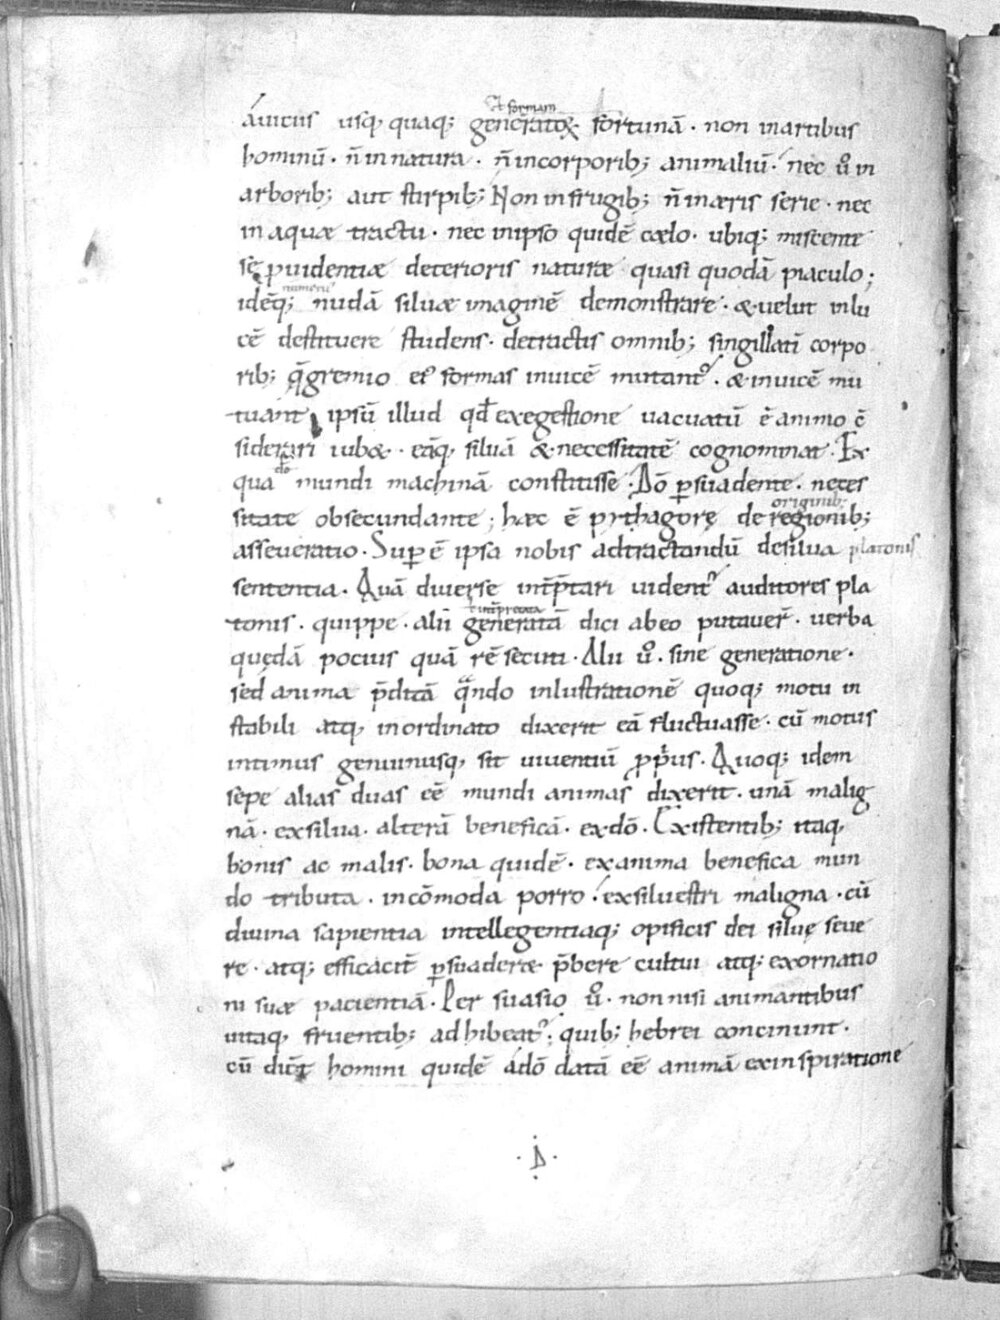 ł formam
áuicus usq; quaq; generatoȝ fortunā · non inartibus
hominū · ñ in natura · ñ incorporib; animaliū · nec ů in
arborib; aut stirpib; Non in frugib; ñ inæris serie · nec
in aquæ tractu · nec inipso quidē cælo · ubiq; miscente
sę puidentiæ deterioris naturæ quasi quodā piaculo;
numeri
idēq; nudā siluæ imaginē demonstrare · & uelut inlu
cē destituere studens · detractis omnib; singillatī corpo
rib; q̄ gremio eiꝰ formas inuicē mutant᷑ · & inuicē mu
tuant ipsū illud qđ exegestione uacuatū ē animo c̄
siderari iub& · eāq, siluā & necessitatē cognominat · Ex
qua mundi machinā constitisse · Dō ꝑsuadente · neces
originib;
sitate obsecundante ; hæc ē pythagorę de regionib;
asseueratio · Suꝑ ē ipsa nobis adtractandū desilua platonis
sententia · Quā diuerse int̄p̄tari uident᷑ auditores pla
ł int̄pretata
tonis · quippe · alii generatā dici abeo putauer̄ · uerba
quędā pocius quā rē secuti · Alii ů · sine generatione ·
sed anima p̄ditā q̄ndo inlustrationē quoq; motu in
stabili atq, inordinato dixerit eā fluctuasse · cū motus
intimus genuinusq, sit uiuentiū ꝓpͥus · Quoq; idem
sępe alias duas eē mundi animas dixerit · unā malig
nā · exsilua · alterā beneficā · exdō · Existentib; itaq,
bonis ac malis · bona quidē · exanima benefica mun
do tributa · incōmoda porro · exsiluestri maligna · cū
diuina sapientia intellegentiaq; opificis dei siluę seue
re · atq; efficacit̄ ꝑsuaderæ p̄bere cultui atq; exornatio
ni suæ pacientiā · Per suasio ů · non nisi animantibus
uitaq, fruentib; adhibeat᷑ ; quib; hebrei concinunt ·
cū dic̄t homini quidē ádō datā eē animā exinspiratione
· D ·